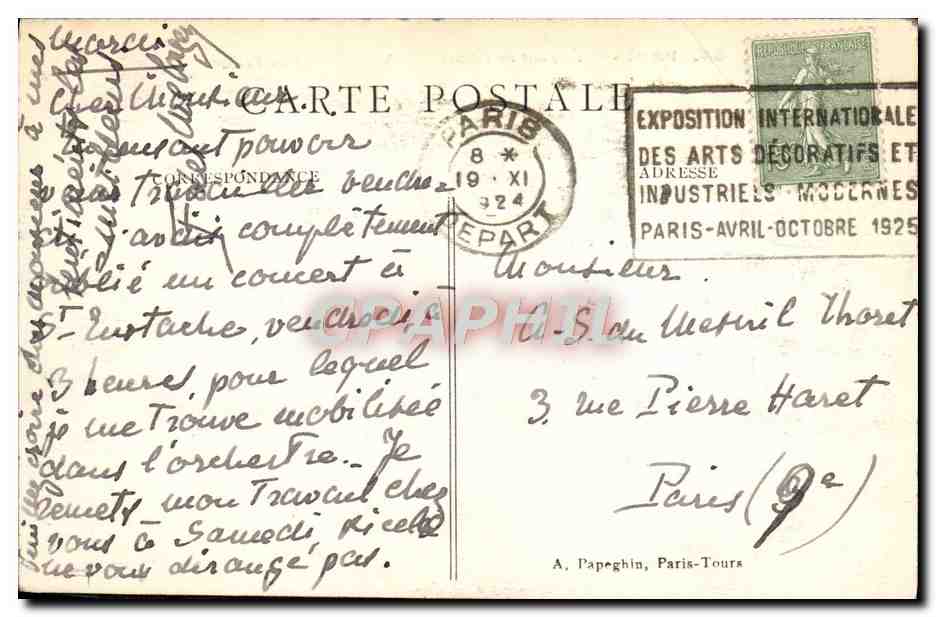 Mardi
Cher Monsieur.
CARTE POSTALE
pensant pouvoir
CORRESPONDANCE
Travailler vendre-
di j'avais complètement
oublié un concert à
St Eustache, vendredi, à
3 heures, pour lequel
je me trouve mobilisée
dans l'orchestre_ Je
remets mon Travail chez
vous à Samedi, si cela
ne vous dérange pas.
croire cher monsieur à mes
REPUBLIQUE FRANÇAISE
15
PARIS
8 *
19 · XI
1924
DEPART
EXPOSITION INTERNATIONALE
DES ARTS DÉCORATIFS ET
INDUSTRIELS · MODERNES
PARIS-AVRIL-OCTOBRE 1925
ADRESSE
Monsieur
du Mesnil Thoret
3, rue Pierre Haret
Paris (9e)
A. Papeghin, Paris-Tours
CPAPHIL